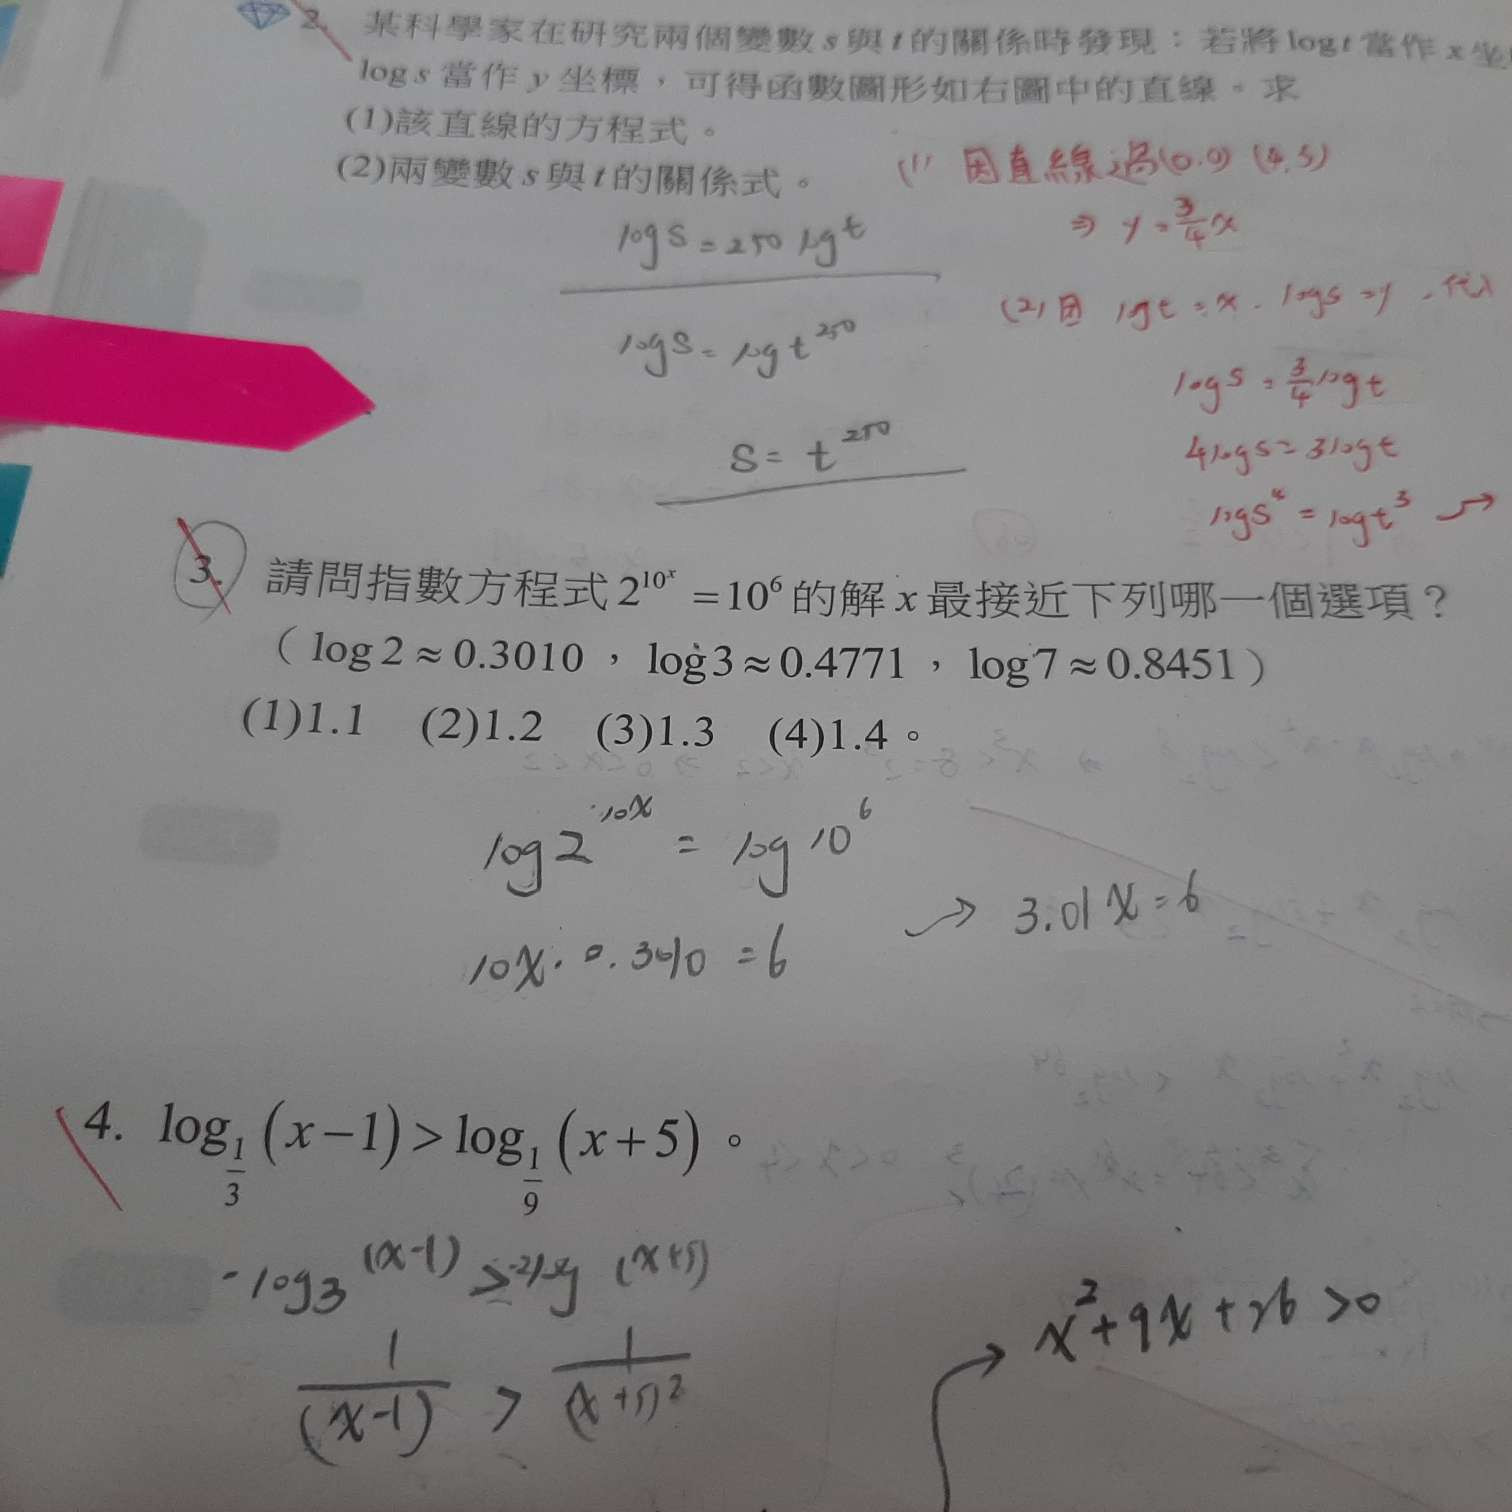 2. 某科學家在研究兩個變數 s 與 t 的關係時發現：若將 log t 當作 x 坐
log s 當作 y 坐標，可得函數圖形如右圖中的直線。求
(1)該直線的方程式。
(2)兩變數 s 與 t 的關係式。
(1) 因直線過(0.0) (4.3)
⇒ y = 3/4 x
log s = 250 log t
(2) 因 log t = x . log s = y . 代入
log s = log t^250
log s = 3/4 log t
4 log s = 3 log t
s = t^250
log s^4 = log t^3 →
3. 請問指數方程式 2^{10^x} = 10^6 的解 x 最接近下列哪一個選項？
（ log 2 ≈ 0.3010 ， log 3 ≈ 0.4771 ， log 7 ≈ 0.8451 ）
(1)1.1 (2)1.2 (3)1.3 (4)1.4。
log 2^{10x} = log 10^6
→ 3.01x = 6
10x . 0.3010 = 6
4. log_{1/3} (x−1) > log_{1/9} (x+5)。
-log3 (x-1)
(x+5)
x^2 + 9x + 26 > 0
1/(x-1) > 1/(x+5)^2